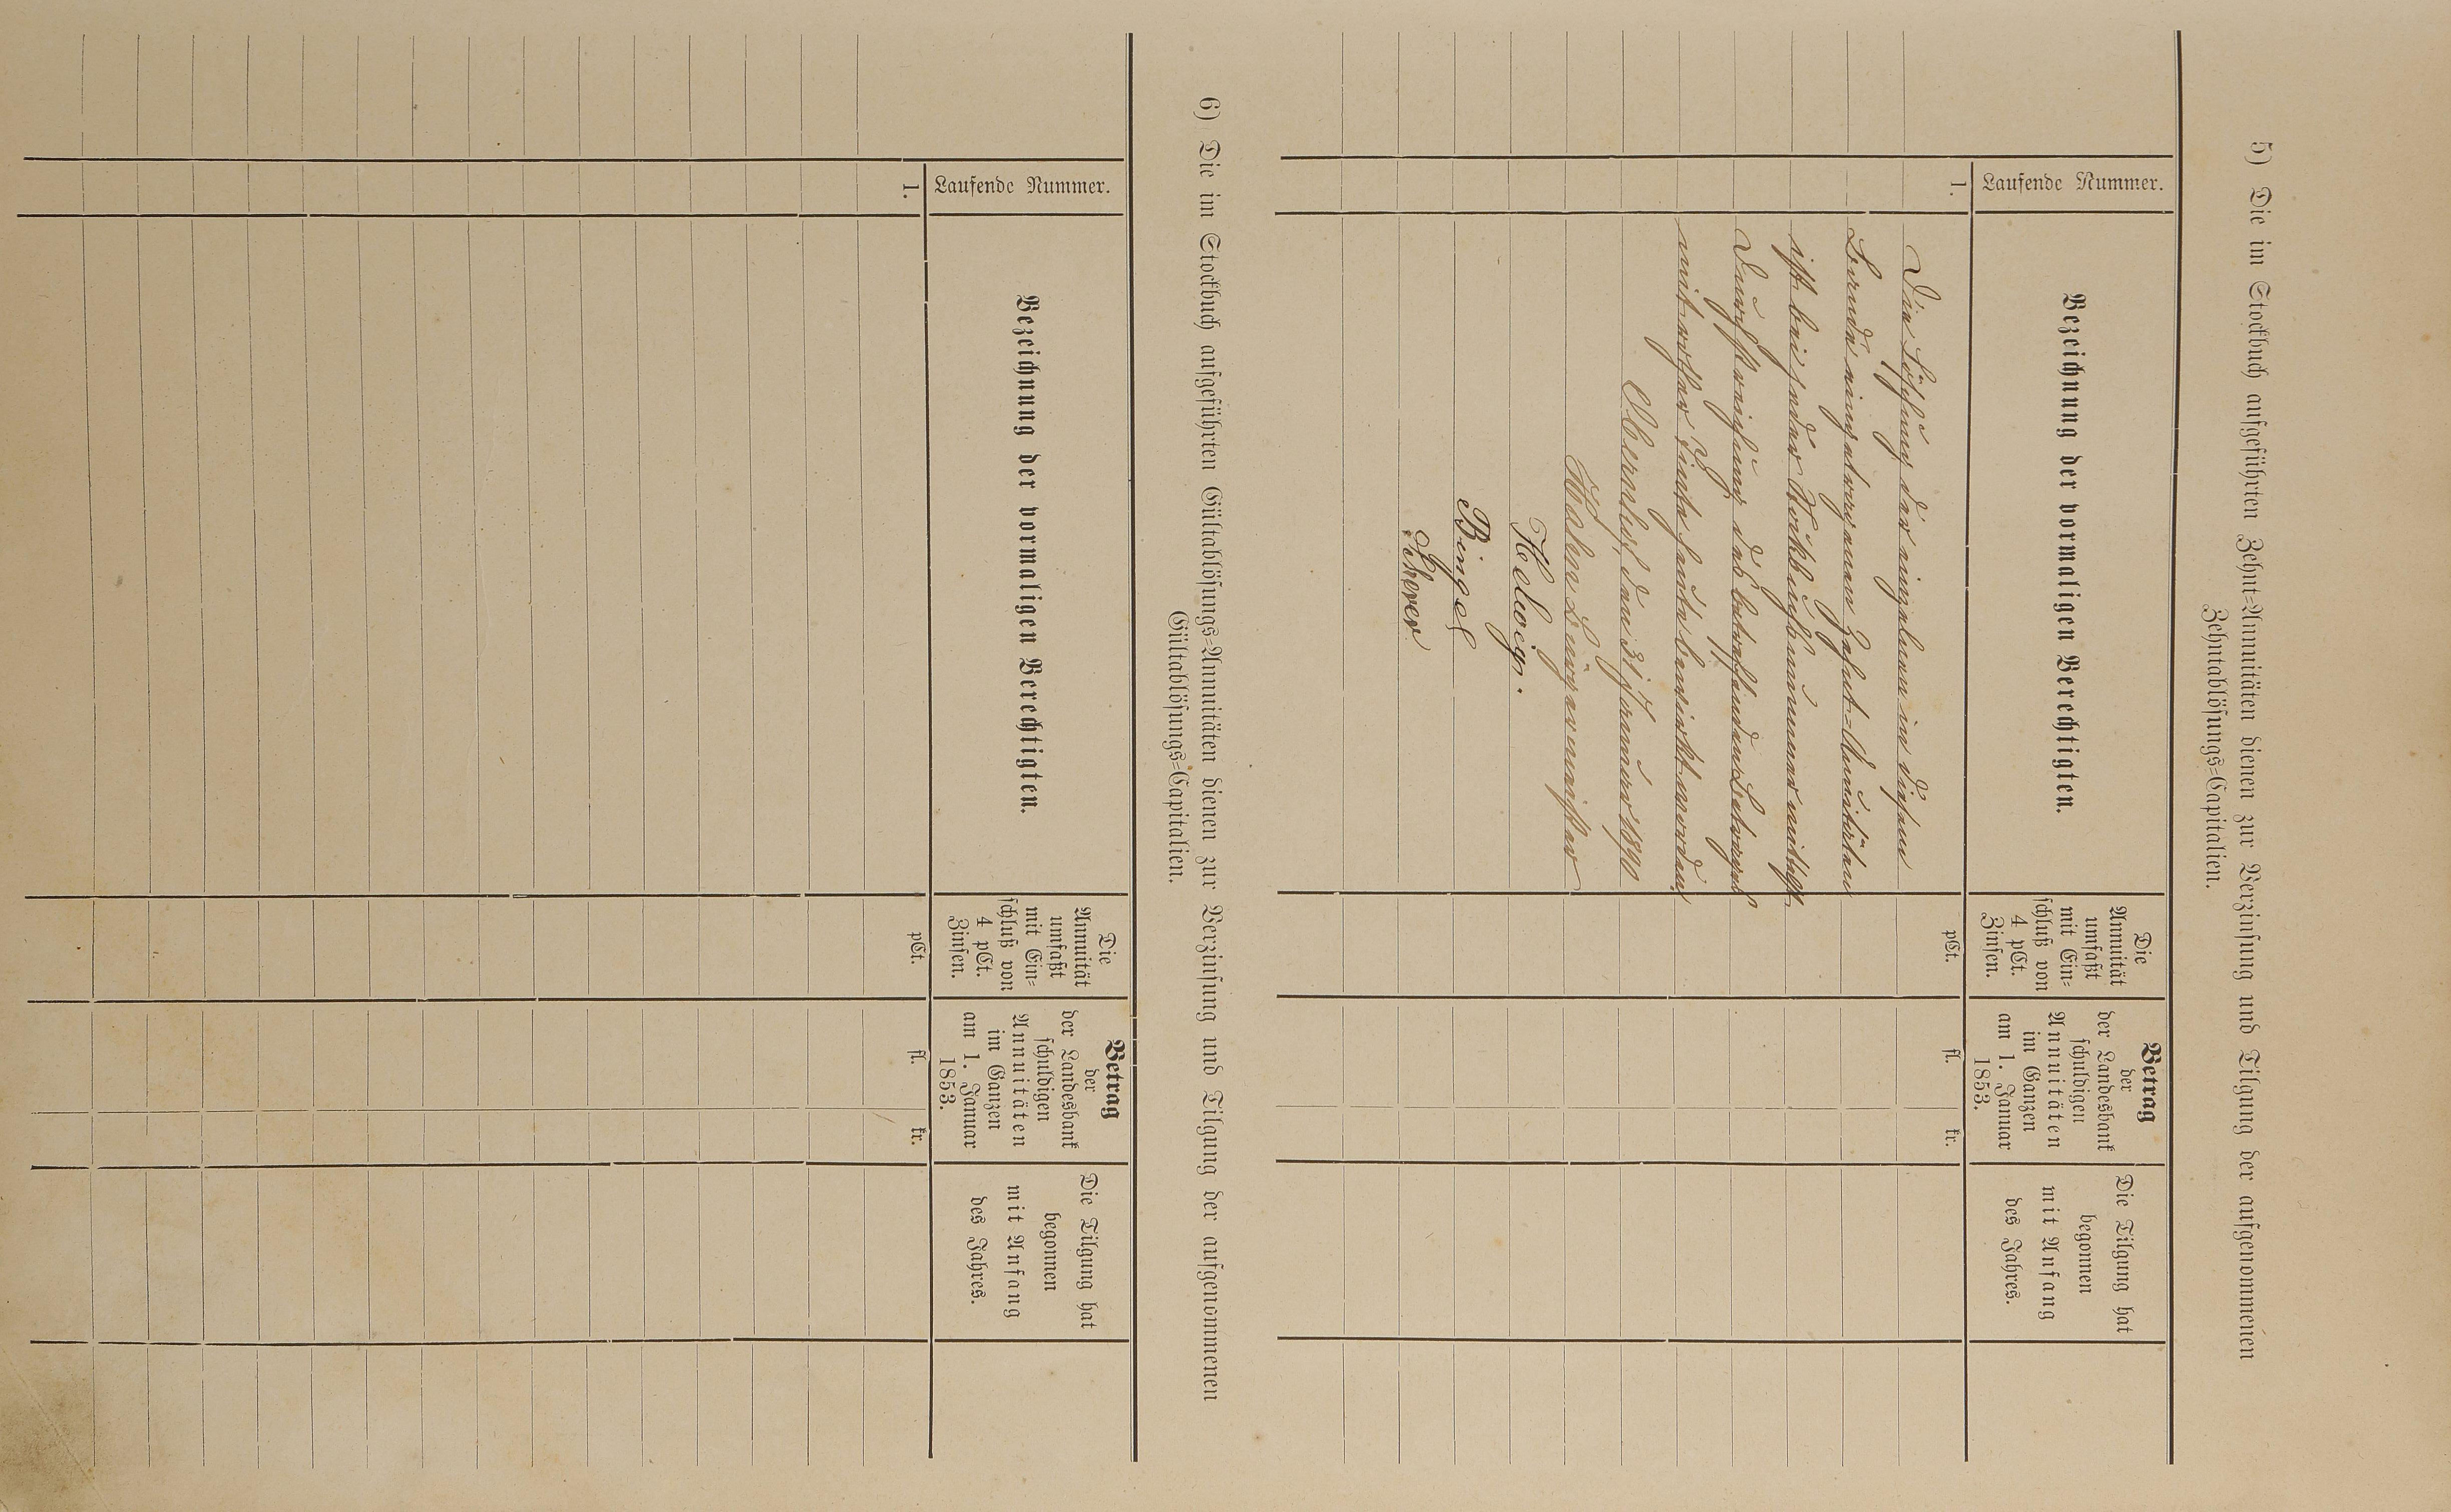 5) Die im Stockbuch aufgeführten Zehnt=Annuitäten dienen zur Verzinsung und Tilgung der aufgenommenen
Zehntablösungs=Capitalien.
Laufende Nummer.
Bezeichnung der vormaligen Berechtigten.
Die
Annuität
umfaßt
mit Ein=
schluß von
4 pCt.
Zinsen.
Betrag
der
der Landesbank
schuldigen
Annuitäten
im Ganzen
am 1. Januar
1853.
Die Tilgung hat
begonnen
mit Anfang
des Jahres.
1.
pCt.
fl.
kr.
Die Löschung der einzelnen in diesem
Bande eingetragenen Zehnt=Annuitäten
ist bei jeder Stockbuchsnummer mittelst
Durchstreichung des betreffenden Eintrags
mit rother Tinte heute bewirkt worden
den 31 Januar 1890
Bürgermeister
Helwig.
Bingel
6) Die im Stockbuch aufgeführten Gültablösungs=Annuitäten dienen zur Verzinsung und Tilgung der aufgenommenen
Gültablösungs=Capitalien.
Laufende Nummer.
Bezeichnung der vormaligen Berechtigten.
Die
Annuität
umfaßt
mit Ein=
schluß von
4 pCt.
Zinsen.
Betrag
der
der Landesbank
schuldigen
Annuitäten
im Ganzen
am 1. Januar
1853.
Die Tilgung hat
begonnen
mit Anfang
des Jahres.
1.
pCt.
fl.
kr.